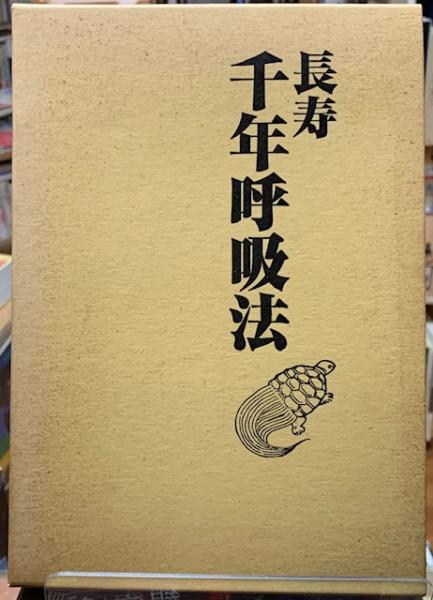 長寿
千年呼吸法